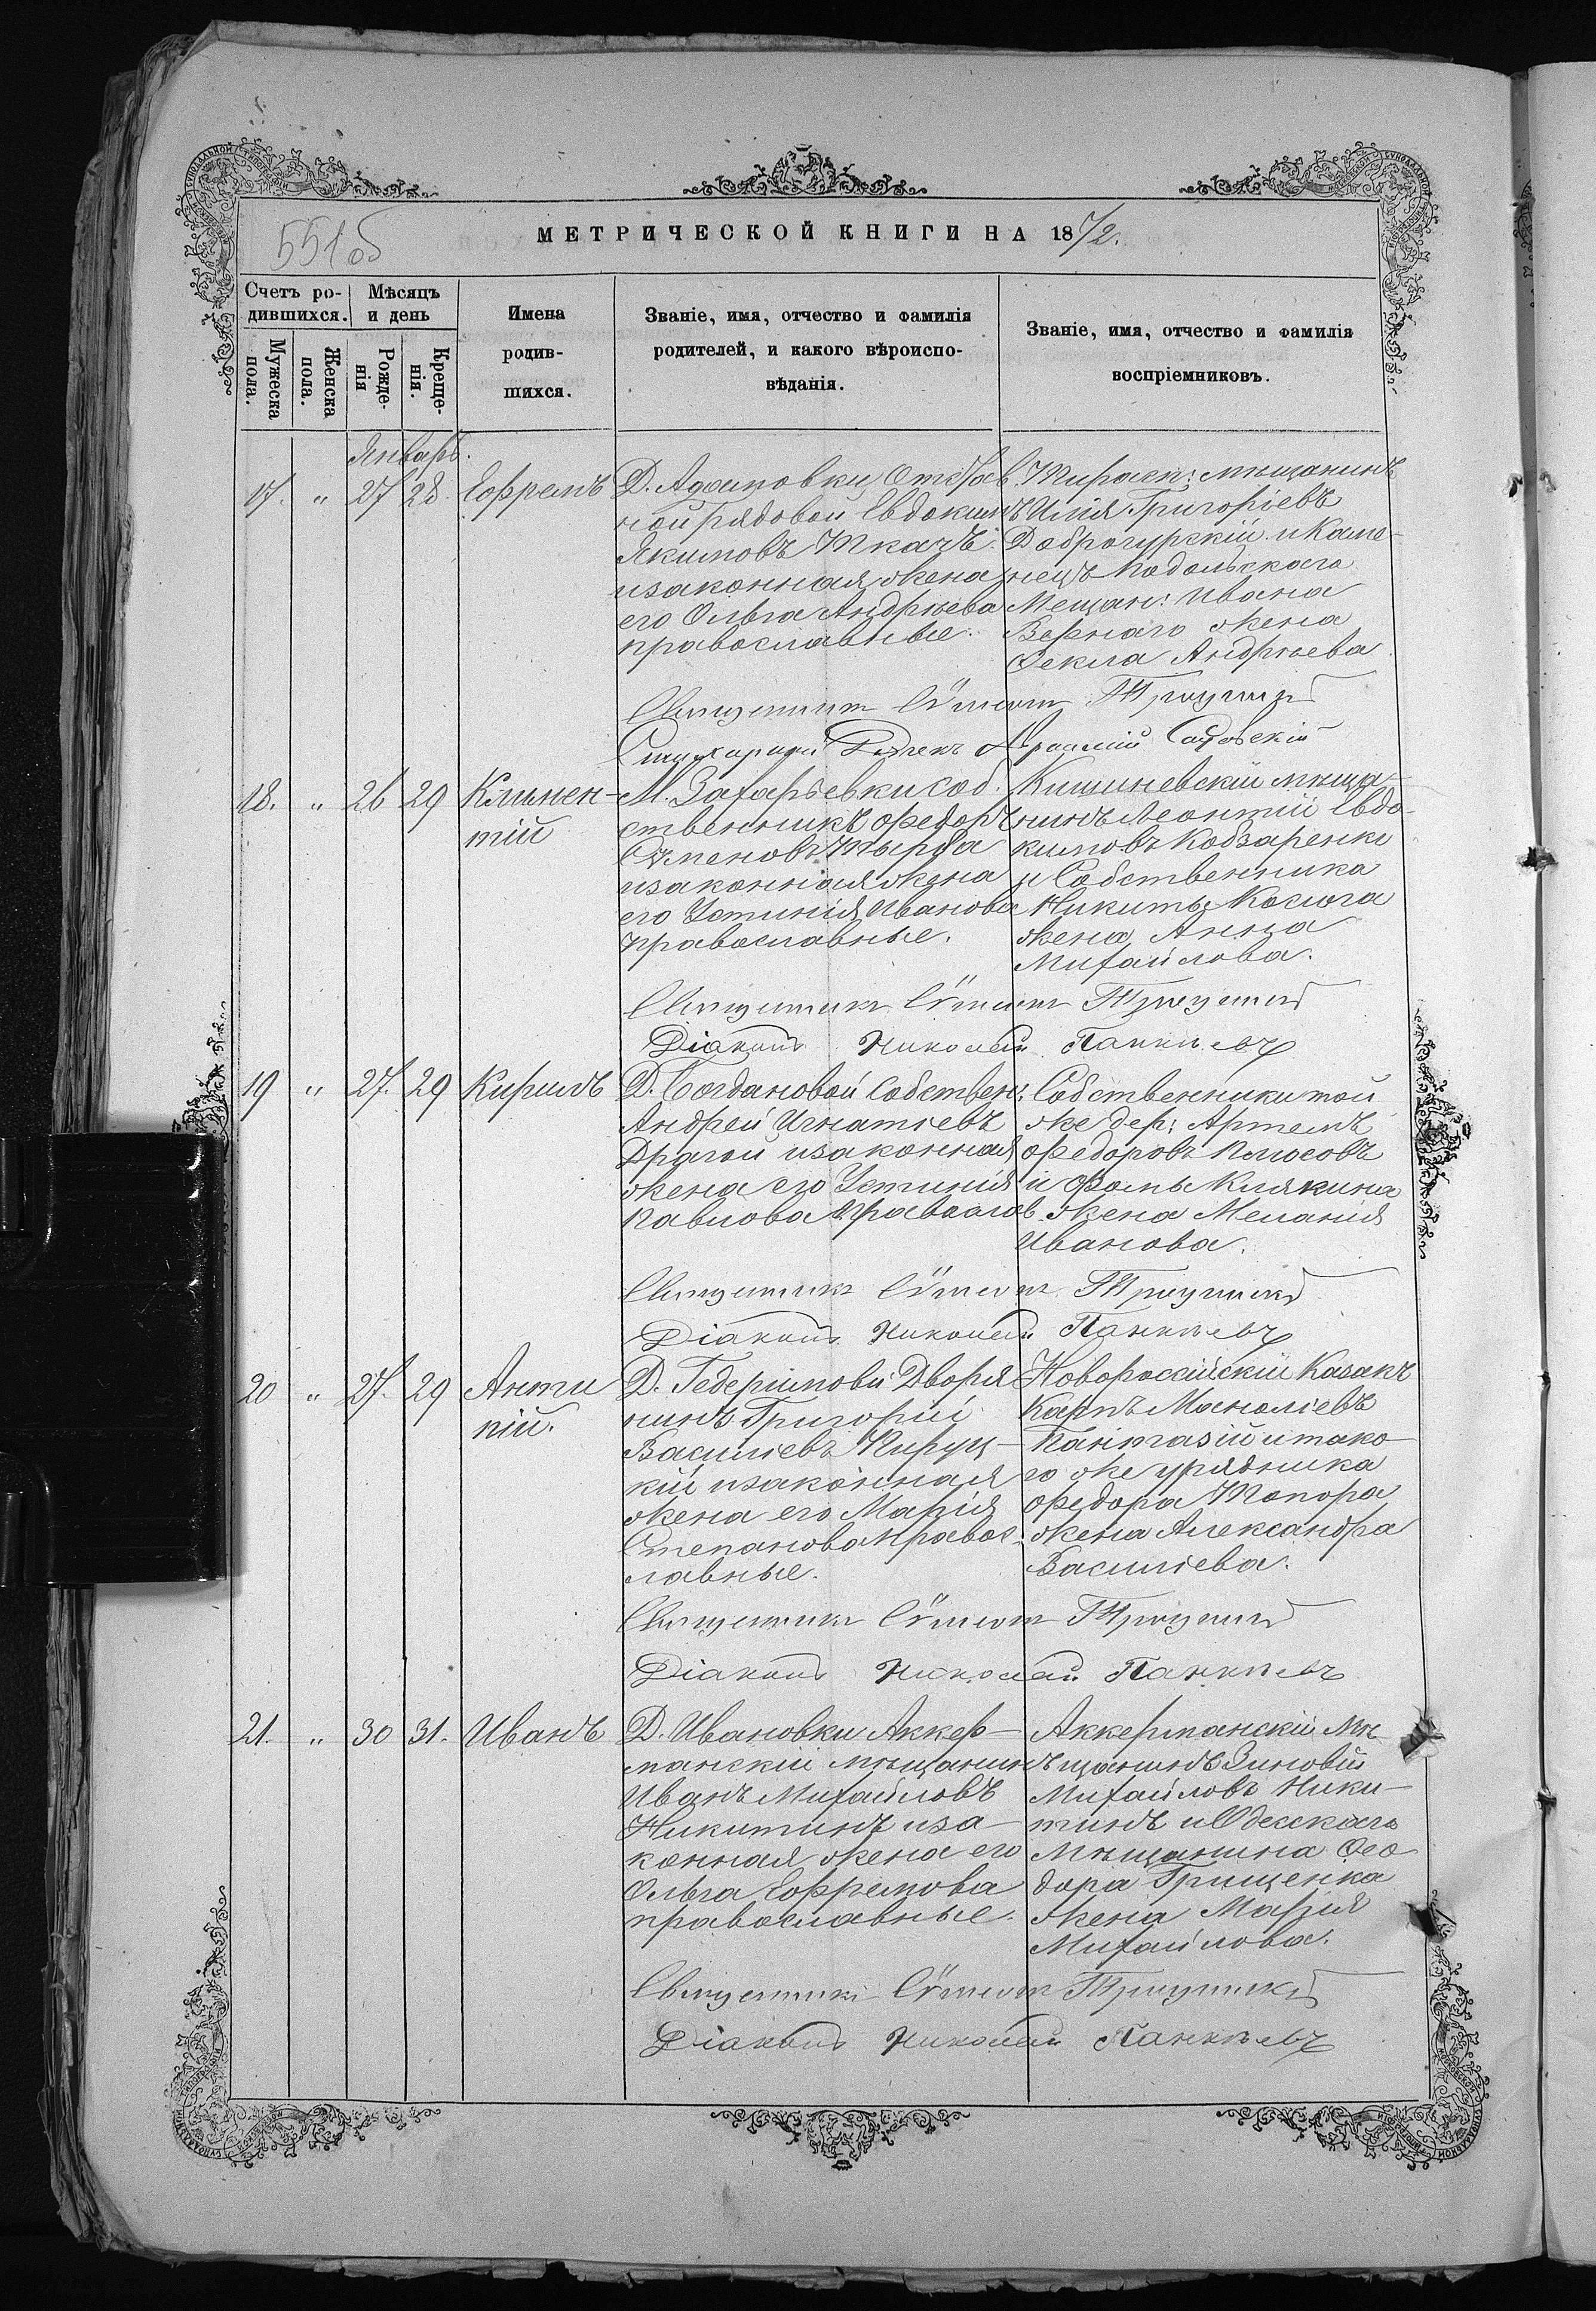 551об
МЕТРИЧЕСКОЙ КНИГИ НА 1872.
Счетъ ро-
дившихся.
Мѣсяцъ
и день
Мужеска
пола.
Женска
пола.
Рожде-
нія
Креще-
нія.
Имена
родив-
шихся.
Званіе, имя, отчество и фамилія
родителей, и какого вѣроиспо-
вѣданія.
Званіе, имя, отчество и фамилія
воспріемниковъ.
Январь.
17. " 27 28 Ефремъ
Д. Адамовки Отстав
ной рядовой Евдоким
Якимовъ Ткачъ
и законная жена
его Ольга Андрѣева
православные.
Тирасп: мѣщанинъ
Илія Григоріевъ
Доброгурскій и Каме-
нецъ Подольскаго
Мещан: Ивана
Вернаго жена
Фекла Андрѣева
Священникъ Троицкій
Садовскій
18. " 26 29 Климен-
тій
М. Захарьевки соб-
ственникъ Федоръ
Семеновъ
и законная жена
его Устинія Иванова
православные.
Кишиневскій мѣща-
нинъ Леонтій Евдо-
кимовъ Кобзаренко
и Собственника
Никиты Козюга
жена Анна
Михайлова.
Священникъ Троицкій
Діаконъ Николай Панкѣевъ
19 " 27. 29 Кирилъ
Д. Богдановой Собствен:
Андрей Игнатіевъ
Другой и законная
жена его Устинія
Павлова Православ.
Собственники той
же дер: Артемъ
Федоровъ Колосовъ
и Фомы Клякина
жена Меланія
Иванова.
Священникъ Троицкій
Діаконъ Николай Панкѣевъ
20 " 27. 29 Анти
пій.
Д. Гедеримова Дворя
нинъ Григорій
Василіевъ Пируц-
кій и законная
жена его Марія
Степанова правос-
лавные.
Новоросийскій Казакъ
Карпъ Маноліевъ
Пантазій и тако-
го же урядника
Федора Топора
жена Александра
Василіева.
Священникъ Троицкій
Діаконъ Николай Панкѣевъ
21. " 30 31. Иванъ
Д. Ивановки Аккер-
манскій мѣщанин
Иванъ Михайловъ
Никитинъ и за-
конная жена его
Ольга Ефремова
православные.
Аккерманскій мѣ-
щанинъ Зиновій
Михайловъ Ники-
тинъ и Одесскаго
Мѣщанина Фео-
дора Грищенка
жена Марія
Михайлова.
Священникъ Троицкій
Діаконъ Николай Панкѣевъ